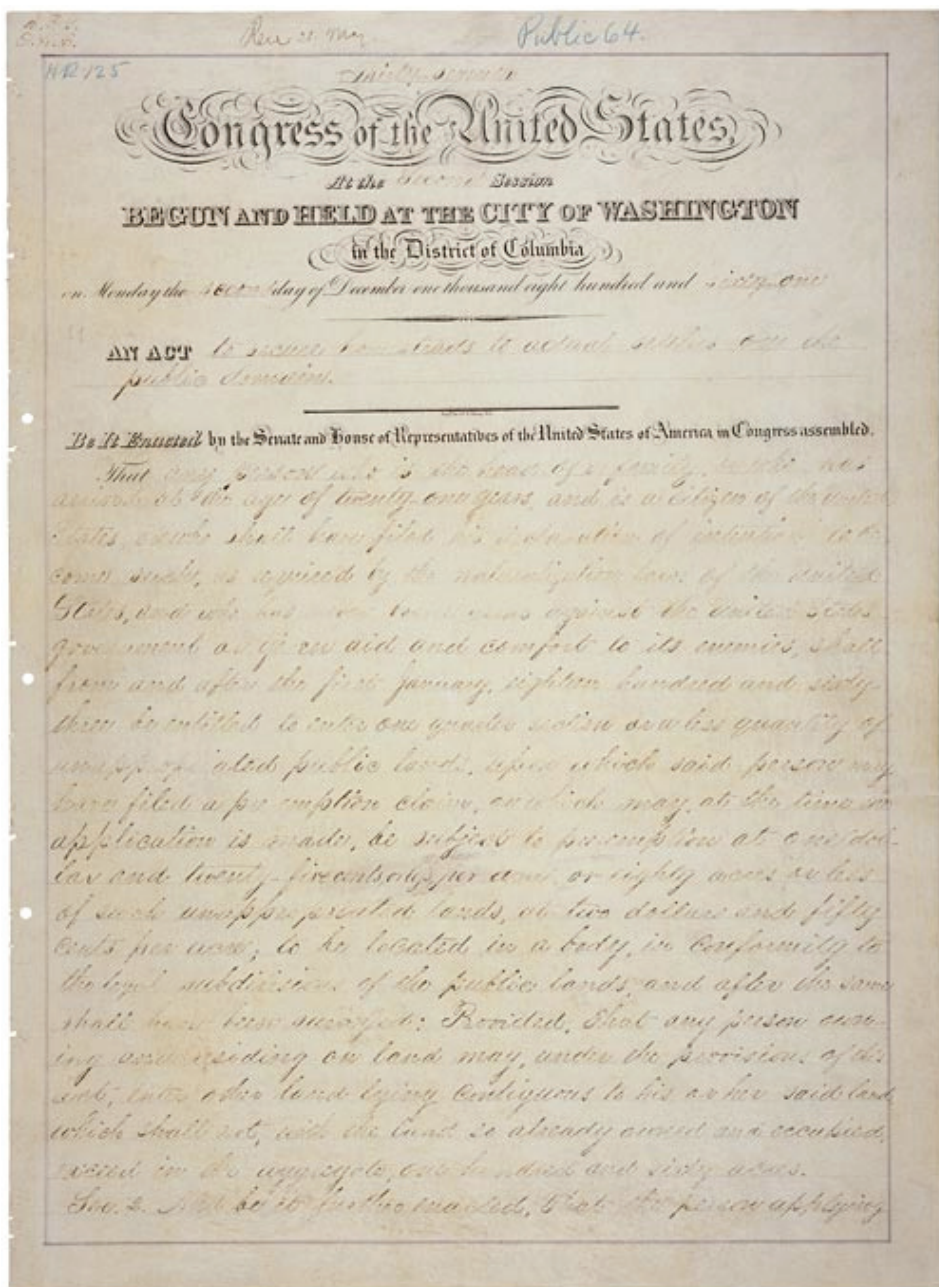 Public 64.
HR 125
Thirty-seventh
Congress of the United States,
At the Second Session
BEGUN AND HELD AT THE CITY OF WASHINGTON
in the District of Columbia
on Monday the second day of December one thousand eight hundred and sixty-one
AN ACT to secure homesteads to actual settlers on the
public domain.
Be It Enacted by the Senate and House of Representatives of the United States of America in Congress assembled,
That any person who is the head of a family, or who has
arrived at the age of twenty-one years, and is a citizen of the United
States, or who shall have filed his declaration of intention to be-
come such, as required by the naturalization laws of the United
States, and who has never borne arms against the United States
government or given aid and comfort to its enemies, shall
from and after the first January, eighteen hundred and sixty-
three be entitled to enter one quarter section or a less quantity of
unappropriated public lands, upon which said person may
have filed a preemption claim, or which may, at the time the
application is made, be subject to preemption at one dol-
lar and twenty-five cents, or less, per acre, or eighty acres or less
of such unappropriated lands, at two dollars and fifty
cents per acre, to be located in a body, in conformity to
the legal subdivisions of the public lands, and after the same
shall have been surveyed: Provided, That any person own-
ing and residing on land may, under the provisions of this
act, enter other land lying contiguous to his or her said land,
which shall not, with the land so already owned and occupied,
exceed in the aggregate one hundred and sixty acres.
Sec. 2. And be it further enacted, That the person applying